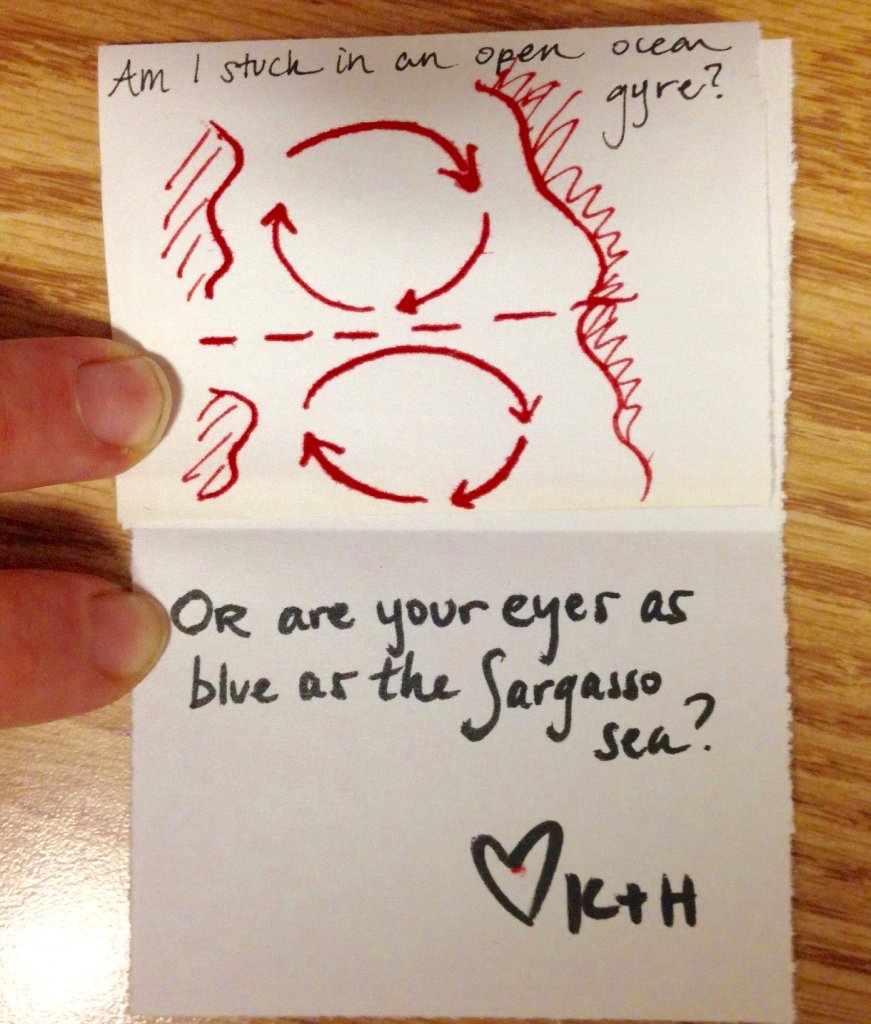 Am I stuck in an open ocean
gyre?
OR are your eyes as
blue as the Sargasso
sea?
K+H